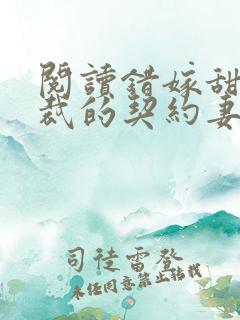 閱讀錯嫁甜
裁的契約妻
司徒雷登
未經同意禁止轉載